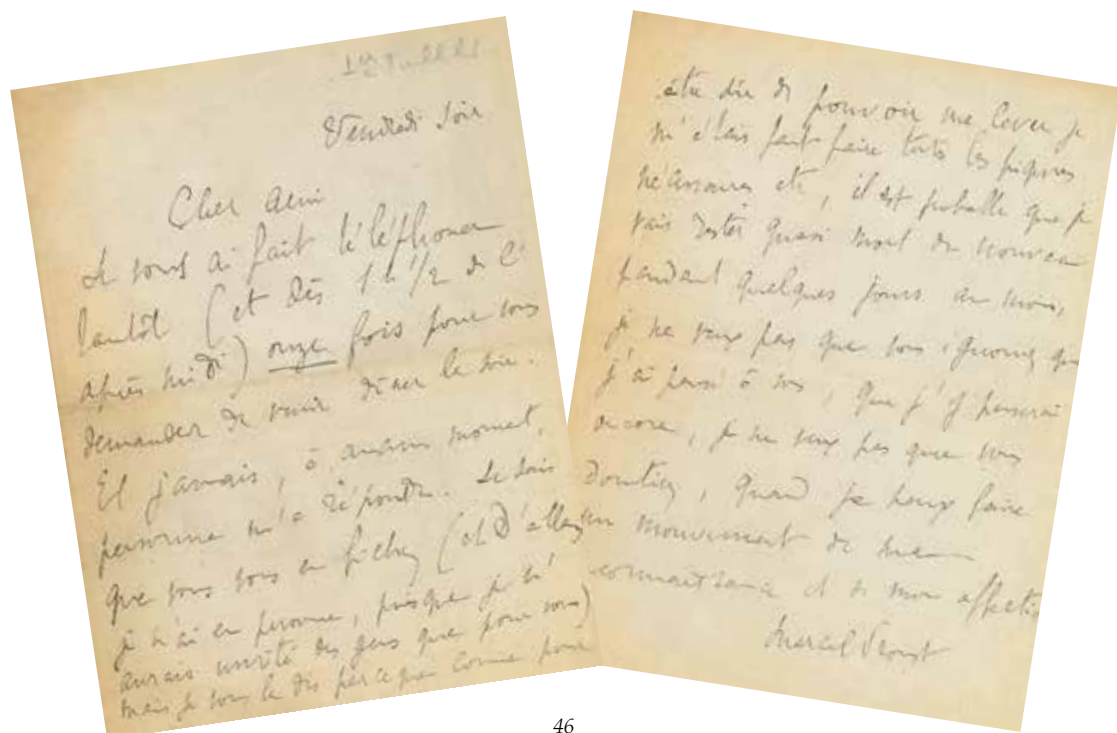 Vendredi soir
Cher ami
Je vous ai fait téléphoner
tantôt (et dès 1 h 1/2 de l'
après midi) onze fois pour vous
demander de venir dîner le soir.
Et jamais, à aucun moment,
personne n'a répondu. Je sais
que vous vous en fichez (et d'ailleurs
je n'ai eu personne, puisque je n'
aurais invité des gens que pour vous)
mais je vous le dis parce que comme pour
être sûr de pouvoir me lever je
m'étais fait faire toutes les piqûres
nécessaires etc, il est probable que je
vais rester quasi mort de nouveau
pendant quelques jours au moins,
je ne veux pas que vous ignoriez que
j'ai pensé à vous, que j'y penserai
encore, je ne veux pas que vous
doutiez, quand je peux faire
un mouvement de ma
reconnaissance et de mon affection
Marcel Proust
46